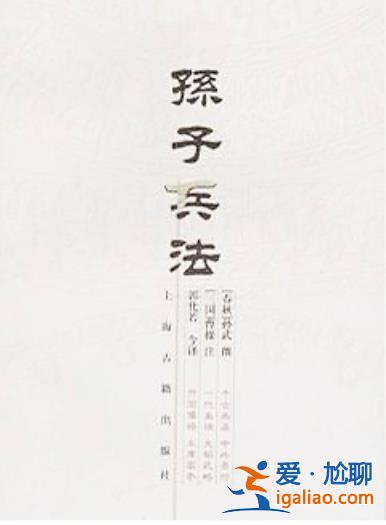 孫子兵法
[春秋]孙武 撰
[三国]曹操 注
郭化若 今译
上海古籍出版社
一代枭雄 文韬武略
爱·尬聊
igaliao.com